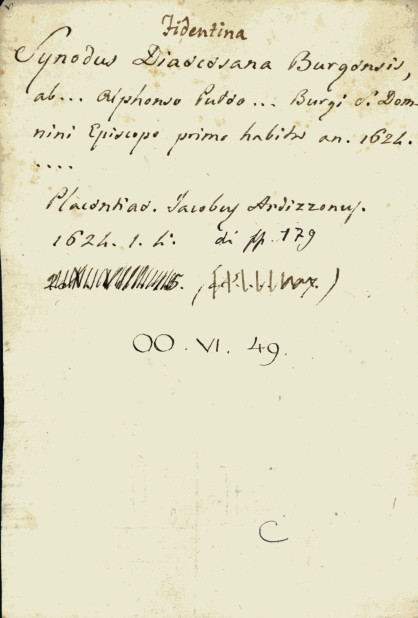 Fidentina
Synodus Dioecesana Burgensis,
ab... Alphonso Puteo... Burgi S. Dom-
nini Episcopo primo habita an. 1624.
....
Placentiae. Jacobus Ardizzonus.
1624. 1. 4.° di pp. 179
OO. VI. 49.
C